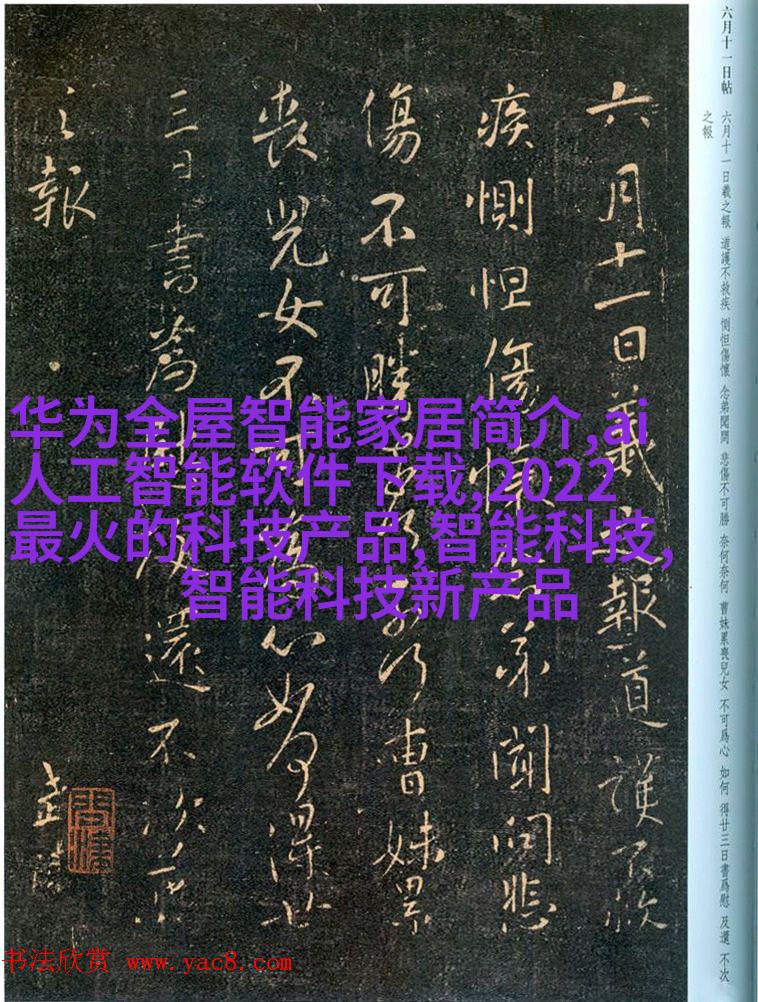 六月十一日帖
六月十一日羲之報 道護不救疾 惻怛傷懷 念弟聞問 悲傷不可勝 奈何奈何 曹妹累喪兒女 不可爲心 如何 得廿三日書爲慰 及還 不次
之報
六月十一日羲之報道護不救
疾惻怛傷懷念弟聞問悲
傷不可勝奈何奈何曹妹累
喪兒女不可為心如何得廿
三日書為慰及還不次羲
之報
华为全屋智能家居简介,ai
人工智能软件下载,2022
最火的科技产品,智能科技,
智能科技新产品
书法欣赏 www.yac8.com